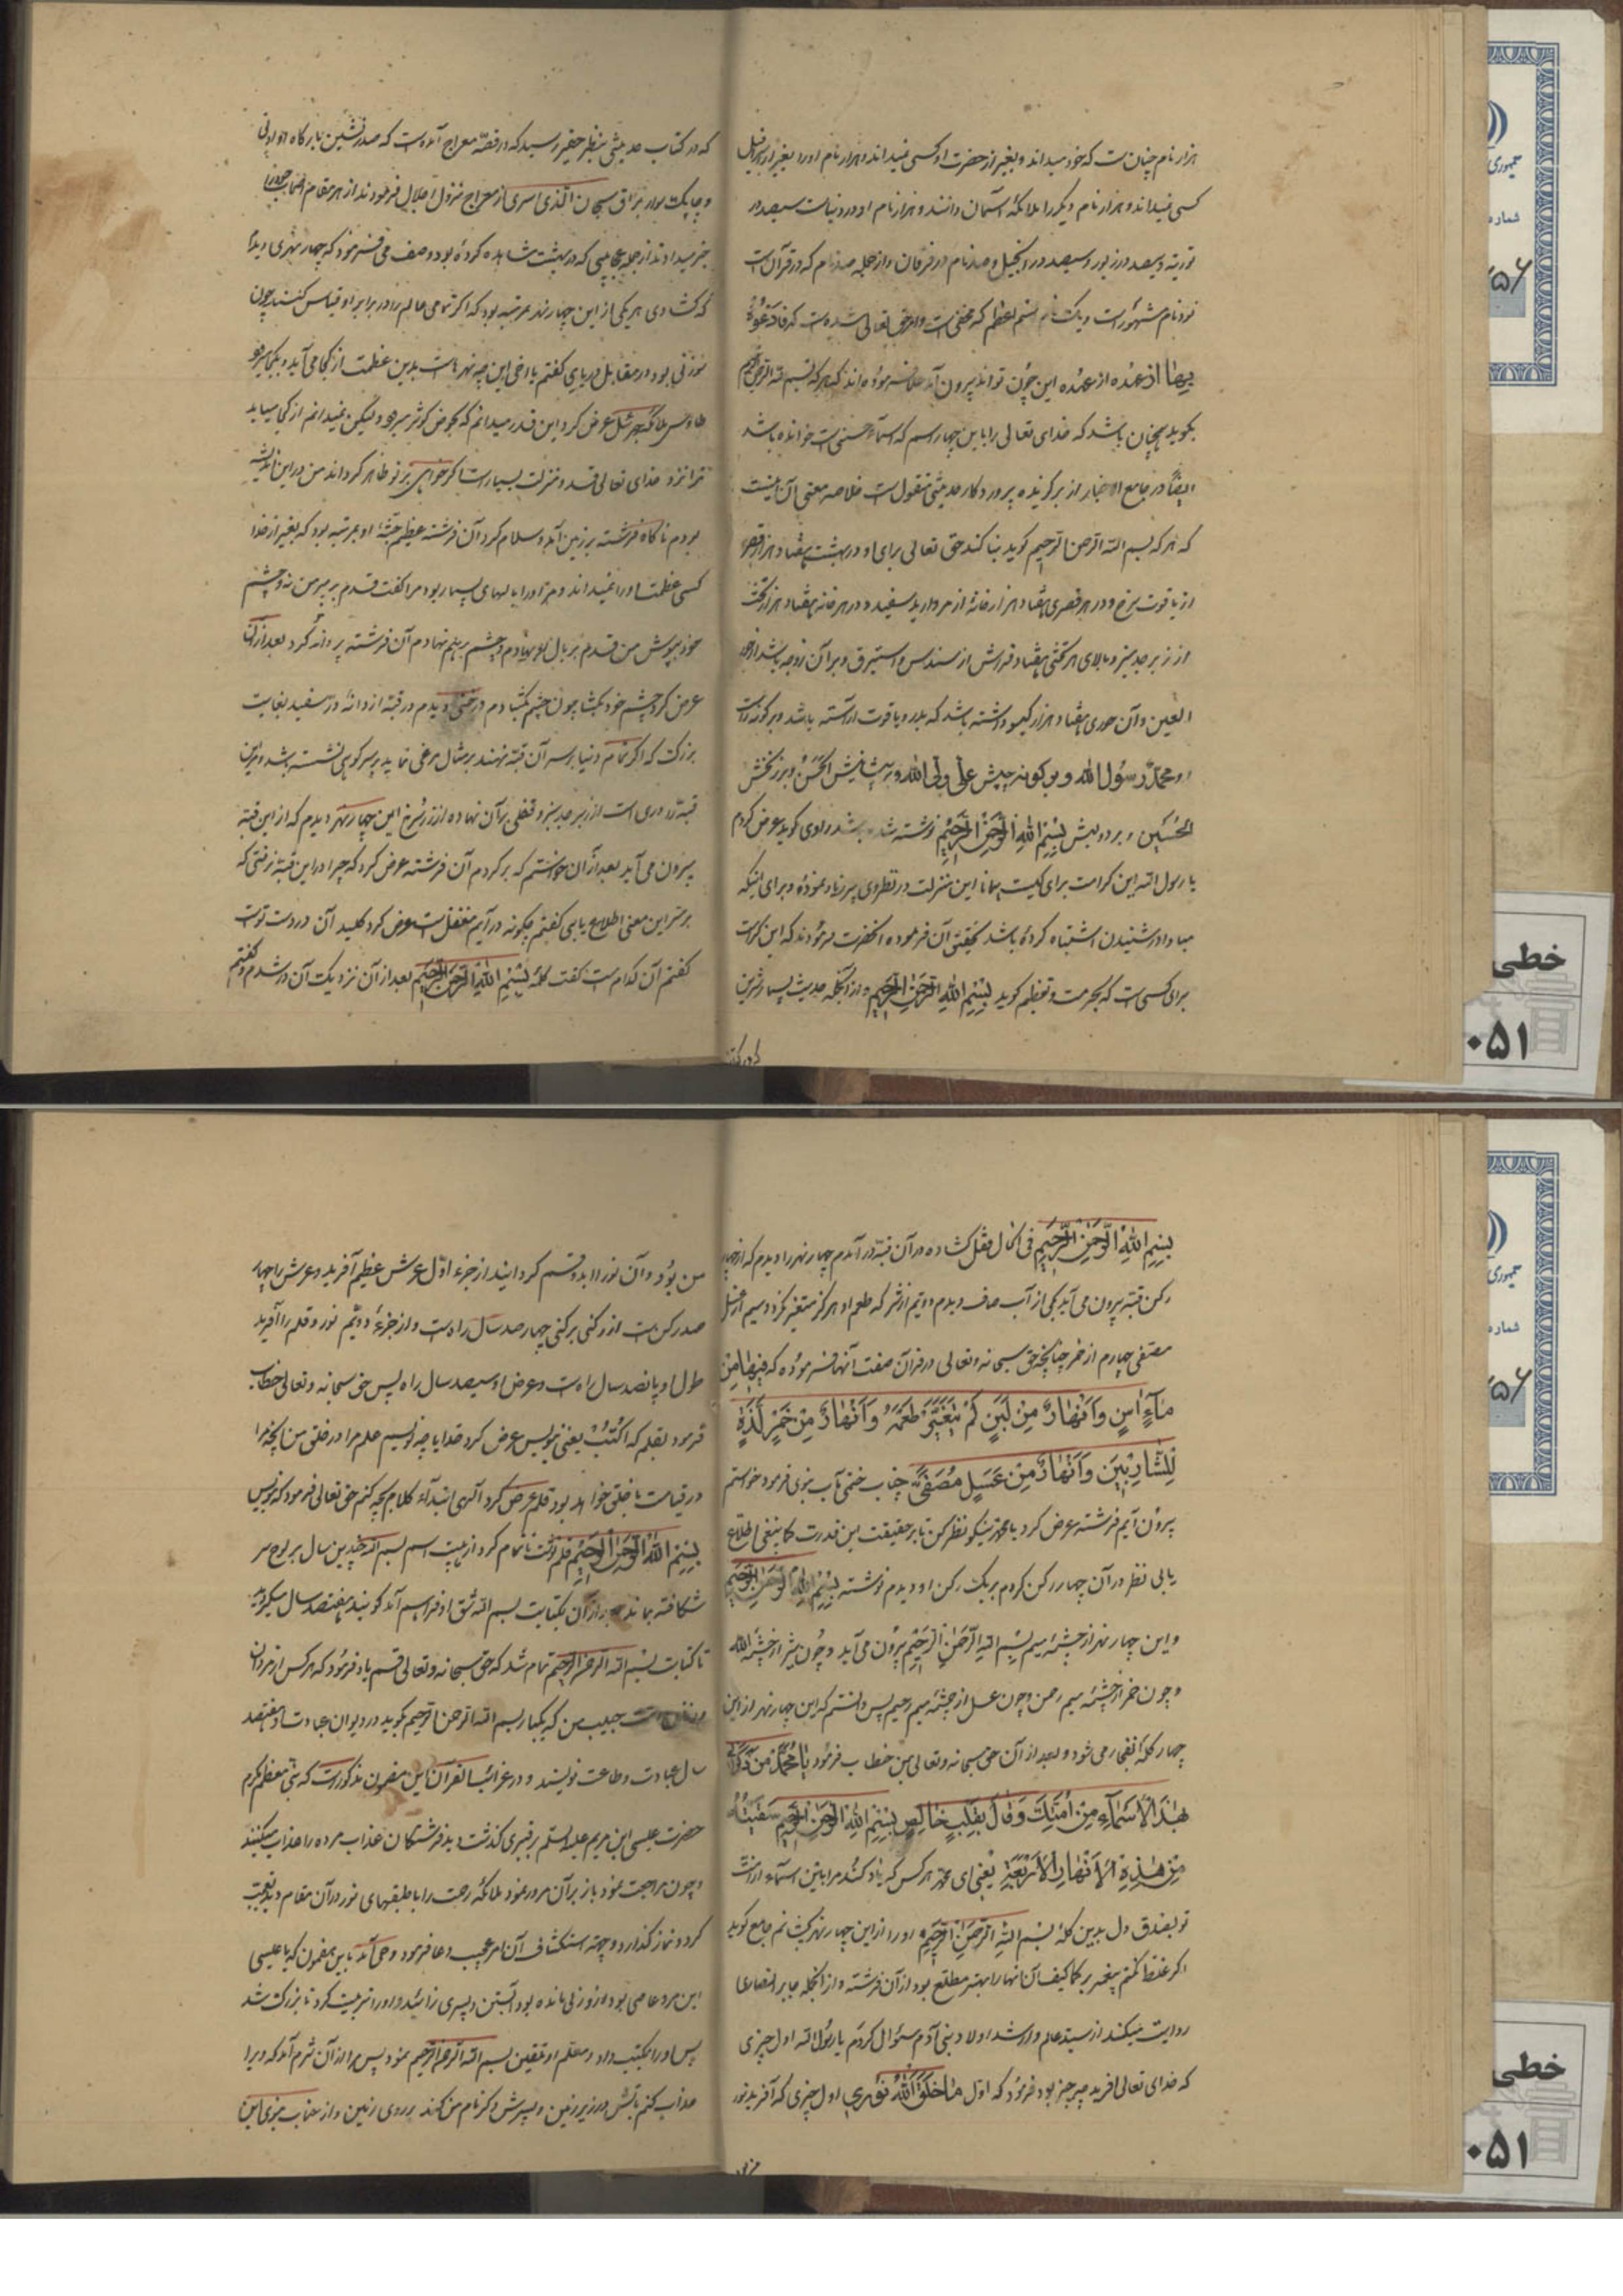 هزار نام چنان ست که خود میداند و بغیر از حضرت او کسی نمیداند و هزار نام او را بغیر از اسرافیل
کسی نمیداند و هزار نام دیگر را ملائکهٔ آسمان دانند و هزار نام او در دنیاست سیصد در
توریة و سیصد در زبور و سیصد در انجیل و صد نام در فرقان و از جمله صد نام که در قرآن است
نود نام مشهور است و یک نام اسم اعظم که مخفی است و امر حق تعالی شده ست که فادعوه
بها از عهده این چون تواند بیرون آمد علما فرموده اند که هر که بسم الله الرحمن الرحیم
بگوید همچنان باشد که خدای تعالی را باین چهار اسم که اسماء حسنی ست خوانده باشد
ایضاً در جامع الاخبار از برگزیده پروردگار حدیثی منقول است خلاصه معنی آن اینست
که هر که بسم الله الرحمن الرحیم گوید بنا کند حق تعالی برای او در بهشت هفتاد هزار قصر
از یاقوت سرخ و در هر قصری هفتاد هزار خانهٔ از مروارید سفید و در هر خانه هفتاد هزار تخت
از زبرجد سبز و بالای هر تختی هفتاد فراش از سندس و استبرق و بر آن زوجه باشد از حور
العین و آن حوری هفتاد هزار گیسو داشته باشد که بدر و یاقوت آراسته باشد و بر گونه راست
او محمد رسول الله و بر گونه چپش علی ولی الله و بر پیشانیش الحسن و بر زنخش
الحسین و بر دو لبش بسم الله الرحمن الرحیم نوشته شده باشد راوی گوید عرض کردم
یا رسول الله این کرامت برای کیست همانا این منزلت در نظر وی پر زیاد نموده و برای اینکه
مبادا در شنیدن اشتباه کرده باشد تحقیق آن فرموده آنحضرت فرمودند که این کرامت
برای کسی ست که بحرمت و تعظیم گوید بسم الله الرحمن الرحیم و از آنجمله حدیث بسیار شیرین
که در کتاب حدیثی بنظر حقیر رسید که در قصّه معراج آمده ست که صدر نشین بارگاه او ادنی
و چابک سوار براق سبحان الذی اسری از معراج نزول اجلال فرمودند از هر مقام اصحاب خود را
خبر میدادند از جمله عجایبی که در بهشت مشاهده کرده بود وصف می فرمود که چهار نهری دیدم
که گشادی هر یکی از این چهار نهر بمرتبه بود که اگر تمامی عالم را در برابر او قیاس کنند چون
نور نی بود در مقابل دریای گفتم یا اخی این چه نهر هاست بدین عظمت از کجا می آید و بکجا میرود
طاوس ملائکه جبرئیل عرض کرد این قدر میدانم که بحوض کوثر میرود و لیکن نمیدانم از کجا میآید
ترا نزد خدای تعالی قدر و منزلت بسیار است اگر خواهی بر تو ظاهر گرداند من در این اندیشه
بودم ناگاه فرشته بر زمین آمد و سلام کرد آن فرشته عظیم جثهٔ او بمرتبه بود که بغیر از خدا
کسی عظمت او را نمیداند و مر او را بالهای بسیار بود مرا گفت قدم بر پر من نه و چشم
خود بپوش من قدم بر بال او نهادم و چشم بر هم نهادم آن فرشته پروانه کرد بعد از آن
عرض کرد چشم خود بگشا چون چشم بگشادم درختی دیدم و قبّه از دانهٔ درّ سفید بغایت
بزرگ که اگر تمام دنیا بر سر آن قبّه نهند بر مثال مرغی نماید بر سر کوهی نشسته باشد و بر این
قبّه دری است از زبرجد سبز و قفلی بر آن نهاده از زر سرخ این چهار نهر دیدم که از این قبّه
بیرون می آید بعد از آن خواستم که بر گردم آن فرشته عرض کرد که چرا در این قبّه نرفتی که
بر سر این معنی اطلاع یابی گفتم چگونه در آیم مقفل ست عرض کرد کلید آن در دست توست
گفتم آن کدام ست گفت کلمهٔ بسم الله الرحمن الرحیم بعد از آن نزدیک آن در شدم و گفتم
بسم الله الرحمن الرحیم فی الحال قفل گشاده در آن قبّه در آمدم چهار نهر را دیدم که از چهار
رکن قبّه بیرون می آید یکی از آب صاف دیدم دویّم از شیر که طعم او هرگز متغیّر نگردد سیم از عسل
مصفی چهارم از خمر چنانچه حق سبحانه و تعالی در قرآن صفت آنها فرموده که فیها من
ماء آسن و انهار من لبن لم یتغیّر طعمه و انهار من خمر لذّة
للشاربین و انهار من عسل مصفّی جناب ختمی مآب نبوی فرمود خواستم
بیرون آیم فرشته عرض کرد یا محمد نیکو نظر کن تا بر حقیقت این قدرت کما ینبغی اطلاع
یابی نظر در آن چهار رکن کردم بر یک رکن او دیدم نوشته بسم الله الرحمن الرحیم
و این چهار نهر از چشمهٔ میم بسم الله الرحمن الرحیم بیرون می آید و چون شیر از چشمهٔ الله
و چون خمر از چشمه میم رحمن و چون عسل از چشمهٔ میم رحیم پس دانستم که این چهار نهر از این
چهار کلمه انفجار می شود و بعد از آن حق سبحانه و تعالی بمن خطاب فرمود یا محمد من ذکرنی
بهذ الاسماء من امتک و قال بقلب خالص بسم الله الرحمن الرحیم سقیته
من هذه الانهار الاربعة یعنی ای محمد هر کس که یاد کند مرا باین اسماء از امّت
تو بصدق دل بدین کلمهٔ بسم الله الرحمن الرحیم او را از این چهار نهر بچشانم جامع گوید
اگر غلط نکنم پیغمبر بکما کیف آن انهار را بهتر مطلع بود از آن فرشته و از آنجمله جابر انصاری
روایت میکند از سید عالم و ارشد اولاد بنی آدم سئوال کردم یا رسول الله اول چیزی
که خدای تعالی آفرید چه چیز بود فرمود که اوّل ما خلق الله نوری اول چیزی که آفرید نور
من بود و آن نور را بدو قسم گردانید از جزء اوّل عرش عظیم آفرید و عرش را چهار
صد رکن ست از رکنی برکنی چهار صد سال راه ست و از جزء دویّم نور و قلم را آفرید
طول او پانصد سال راه ست و عرض او سیصد سال راه پس حق سبحانه و تعالی خطاب
فرمود بقلم که اکتب یعنی بنویس عرض کرد خدایا چه نویسم علم مرا در خلق من آنچه مرا
در قیامت با خلق خواهد بود قلم عرض کرد الهی ابتداء کلام بچه کنم حق تعالی فرمود که بنویس
بسم الله الرحمن الرحیم قلم نوشت تا تمام کرد از هیبت اسم بسم الله چندین سال بر لوح سر
شکافته بماند بعد از آن بکتابت بسم الله شق او فراهم آمد گویند هفتصد سال میگردید
تا کتابت بسم الله الرحمن الرحیم تمام شد که حق سبحانه و تعالی قسم یاد فرمود که هر کس از مردان
و زنان امت حبیب من که یکبار بسم الله الرحمن الرحیم بگوید در دیوان عبادت او هفتصد
سال عبادت و طاعت نویسند و در غرائب القرآن این مضمون مذکور است که نبی معظم مکرم
حضرت عیسی ابن مریم علیه السلام بر قبری گذشت دید فرشتگان عذاب مرده را عذاب میکنند
و چون مراجعت نمود باز بر آن مرور نمود ملائکهٔ رحمت را با طبقهای نور در آن مقام دید تعجب
کرد و نماز گذارد و جهة استکشاف آن امر عجیب دعا فرمود وحی آمد باین مضمون که یا عیسی
این مرد عاصی بود و از او زنی مانده بود آبستن و پسری زائید و او را تربیت کرد تا بزرگ شد
پس او را بمکتب داد و معلم او تلقین بسم الله الرحمن الرحیم نمود پس مرا از آن شرم آمد که ویرا
عذاب کنم بآتش در زیر زمین و پسرش ذکر نام من کند بر روی زمین و از جناب نبوی این
خطی
۰۵۱
خطی
۰۵۱